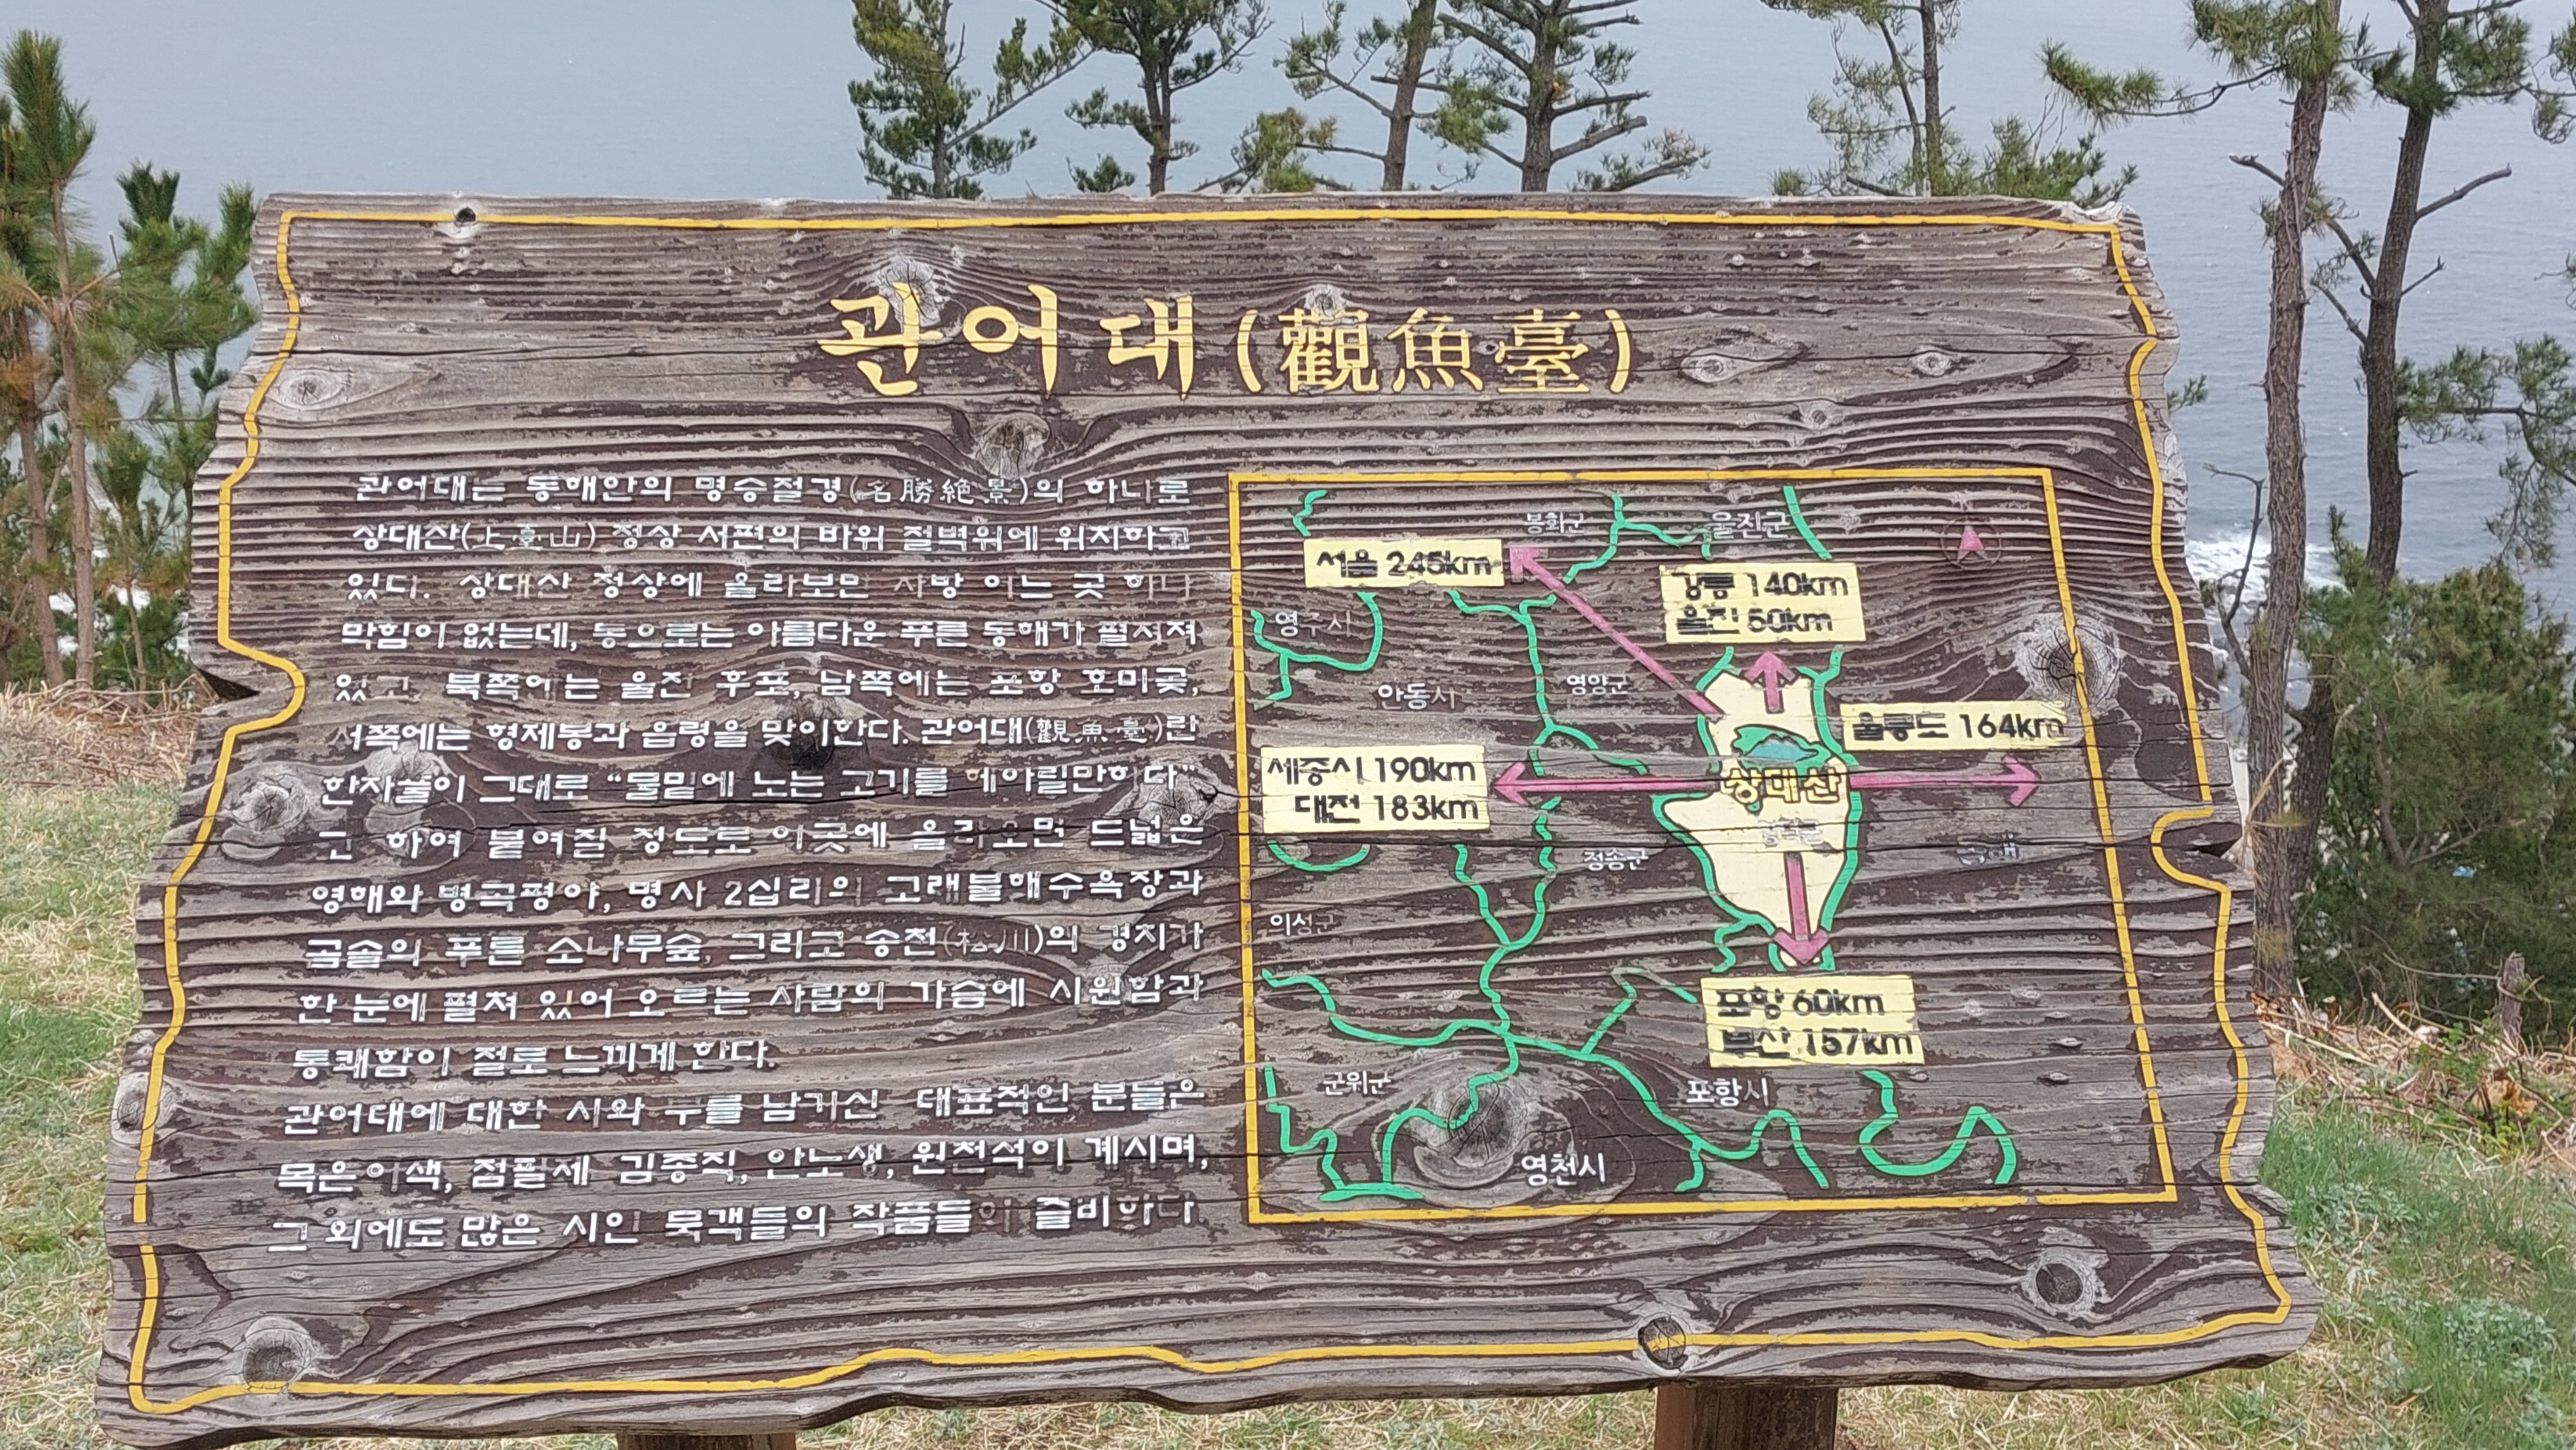 관어대(觀魚臺)
관어대는 동해안의 명승절경(名勝絶景)의 하나로
상대산(上臺山) 정상 서편의 바위 절벽위에 위치하고
있다. 상대산 정상에 올라보면 사방 어느 곳 하나
막힘이 없는데, 동으로는 아름다운 푸른 동해가 펼쳐져
있고 북쪽에는 울진 후포, 남쪽에는 포항 호미곶,
서쪽에는 형제봉과 읍령을 맞이한다. 관어대(觀魚臺)란
한자풀이 그대로 “물밑에 노는 고기를 헤아릴만하다”
고 하여 붙여질 정도로 이곳에 올라오면 드넓은
영해와 병곡평야, 명사 2십리의 고래불해수욕장과
곰솔의 푸른 소나무숲, 그리고 송천(松川)의 경치가
한 눈에 펼쳐 있어 오르는 사람의 가슴에 시원함과
통쾌함이 절로 느끼게 한다.
관어대에 대한 시와 부를 남기신 대표적인 분들은
목은이색, 점필제 김종직, 안노생, 원천석이 계시며,
그 외에도 많은 시인 묵객들의 작품들이 즐비하다
봉화군
울진군
서울 245km
강릉 140km
울진 50km
영주시
안동시
영양군
울릉도 164km
세종시 190km
대전 183km
상대산
영덕군
동해
청송군
의성군
포항 60km
부산 157km
군위군
포항시
영천시